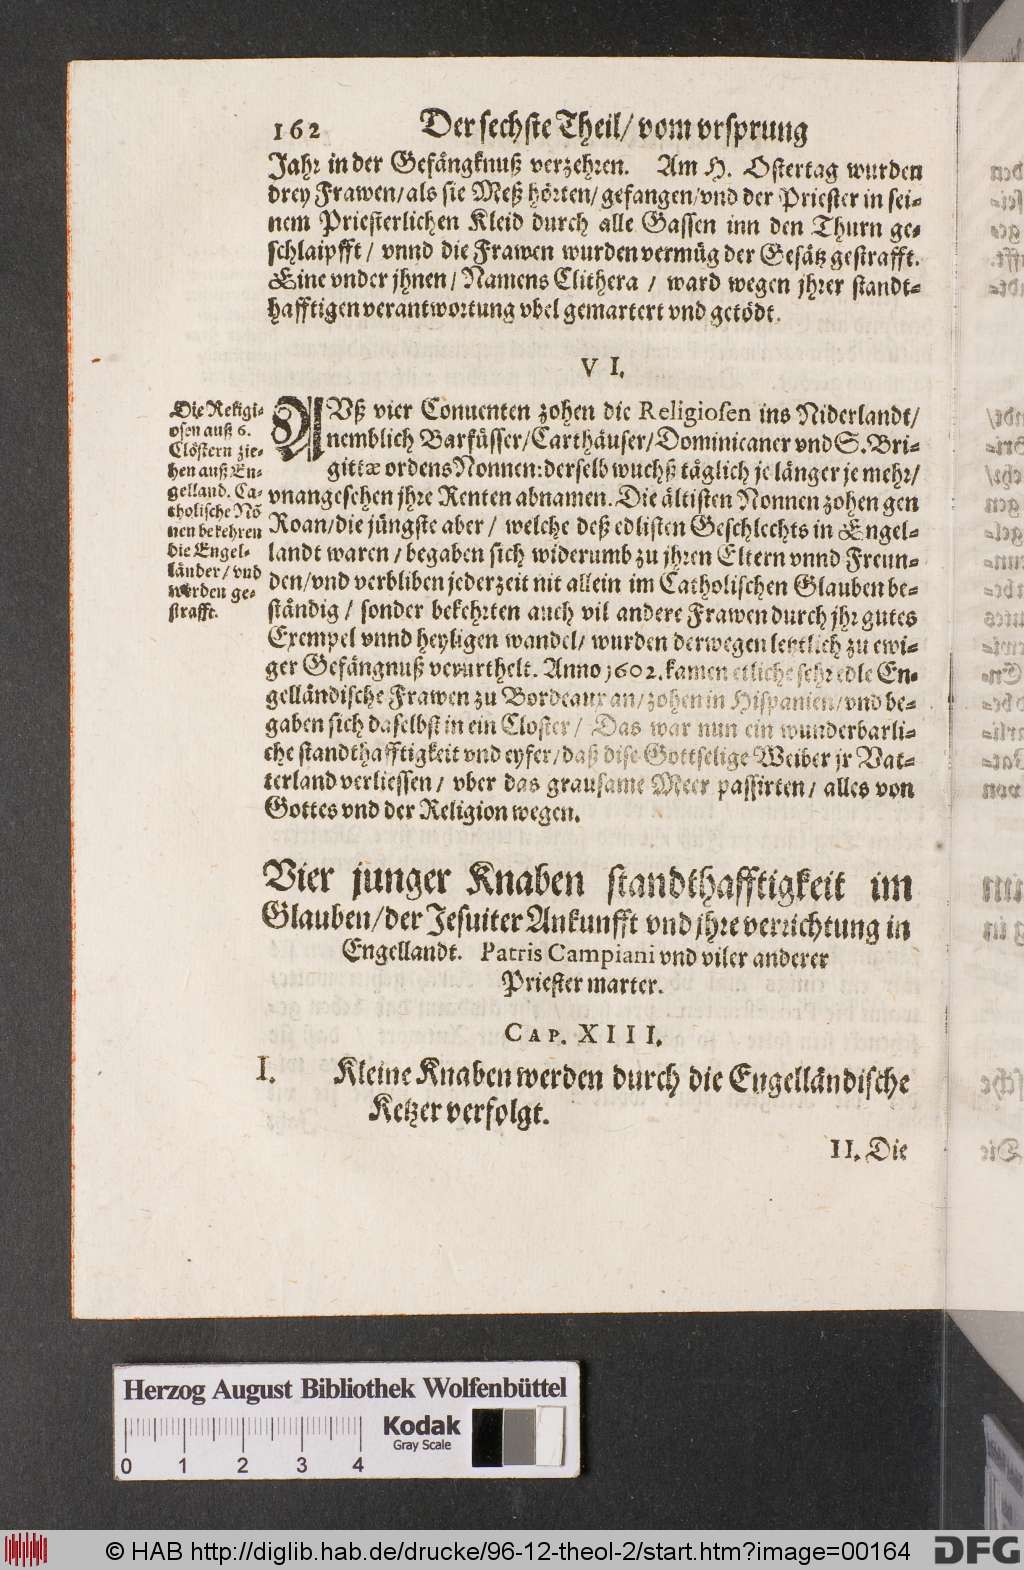 162 Der sechste Theil/ vom vrsprung
Jahr in der Gefängknuß verzehren. Am H. Ostertag wurden
drey Frawen/ als sie Meß hörten/ gefangen/ vnd der Priester in sei-
nem Priesterlichen Kleid durch alle Gassen inn den Thurn ge-
schlaipfft/ vnnd die Frawen wurden vermüg der Gesätz gestrafft.
Eine vnder jhnen/ Namens Clithera/ ward wegen jhrer standt-
hafftigen verantwortung vbel gemartert vnd getödt.
VI.
Die Religi-
osen auß 6.
Clöstern zie-
hen auß En-
gelland. Ca-
tholische Nõ
nen bekehren
die Engel-
länder/ vnd
werden ge-
strafft.
AVß vier Conuenten zohen die Religiosen ins Niderlandt/
nemblich Barfüsser/ Carthäuser/ Dominicaner vnd S. Bri-
gittæ ordens Nonnen: derselb wuchß täglich je länger je mehr/
vnangesehen jhre Renten abnamen. Die ältisten Nonnen zohen gen
Roan/ die jüngste aber/ welche deß edlisten Geschlechts in Engel-
landt waren/ begaben sich widerumb zu jhren Eltern vnnd Freun-
den/ vnd verbliben jederzeit nit allein im Catholischen Glauben be-
ständig/ sonder bekehrten auch vil andere Frawen durch jhr gutes
Exempel vnnd heyligen wandel/ wurden derwegen letztlich zu ewi-
ger Gefängnuß verurthelt. Anno 1602. kamen etliche sehr edle En-
gelländische Frawen zu Bordeaux an/ zohen in Hispanien/ vnd be-
gaben sich daselbst in ein Closter/ Das war nun ein wunderbarli-
che standthafftigkeit vnd eyfer/ daß dise Gottselige Weiber jr Vat-
terland verliessen/ vber das grausame Meer passirten/ alles von
Gottes vnd der Religion wegen.
Vier junger Knaben standthafftigkeit im
Glauben/ der Jesuiter Ankunfft vnd jhre verrichtung in
Engellandt. Patris Campiani vnd viler anderer
Priester marter.
CAP. XIII.
I. Kleine Knaben werden durch die Engelländische
Ketzer verfolgt.
II. Die
Herzog August Bibliothek Wolfenbüttel
Kodak
Gray Scale
0 1 2 3 4
© HAB http://diglib.hab.de/drucke/96-12-theol-2/start.htm?image=00164
DFG